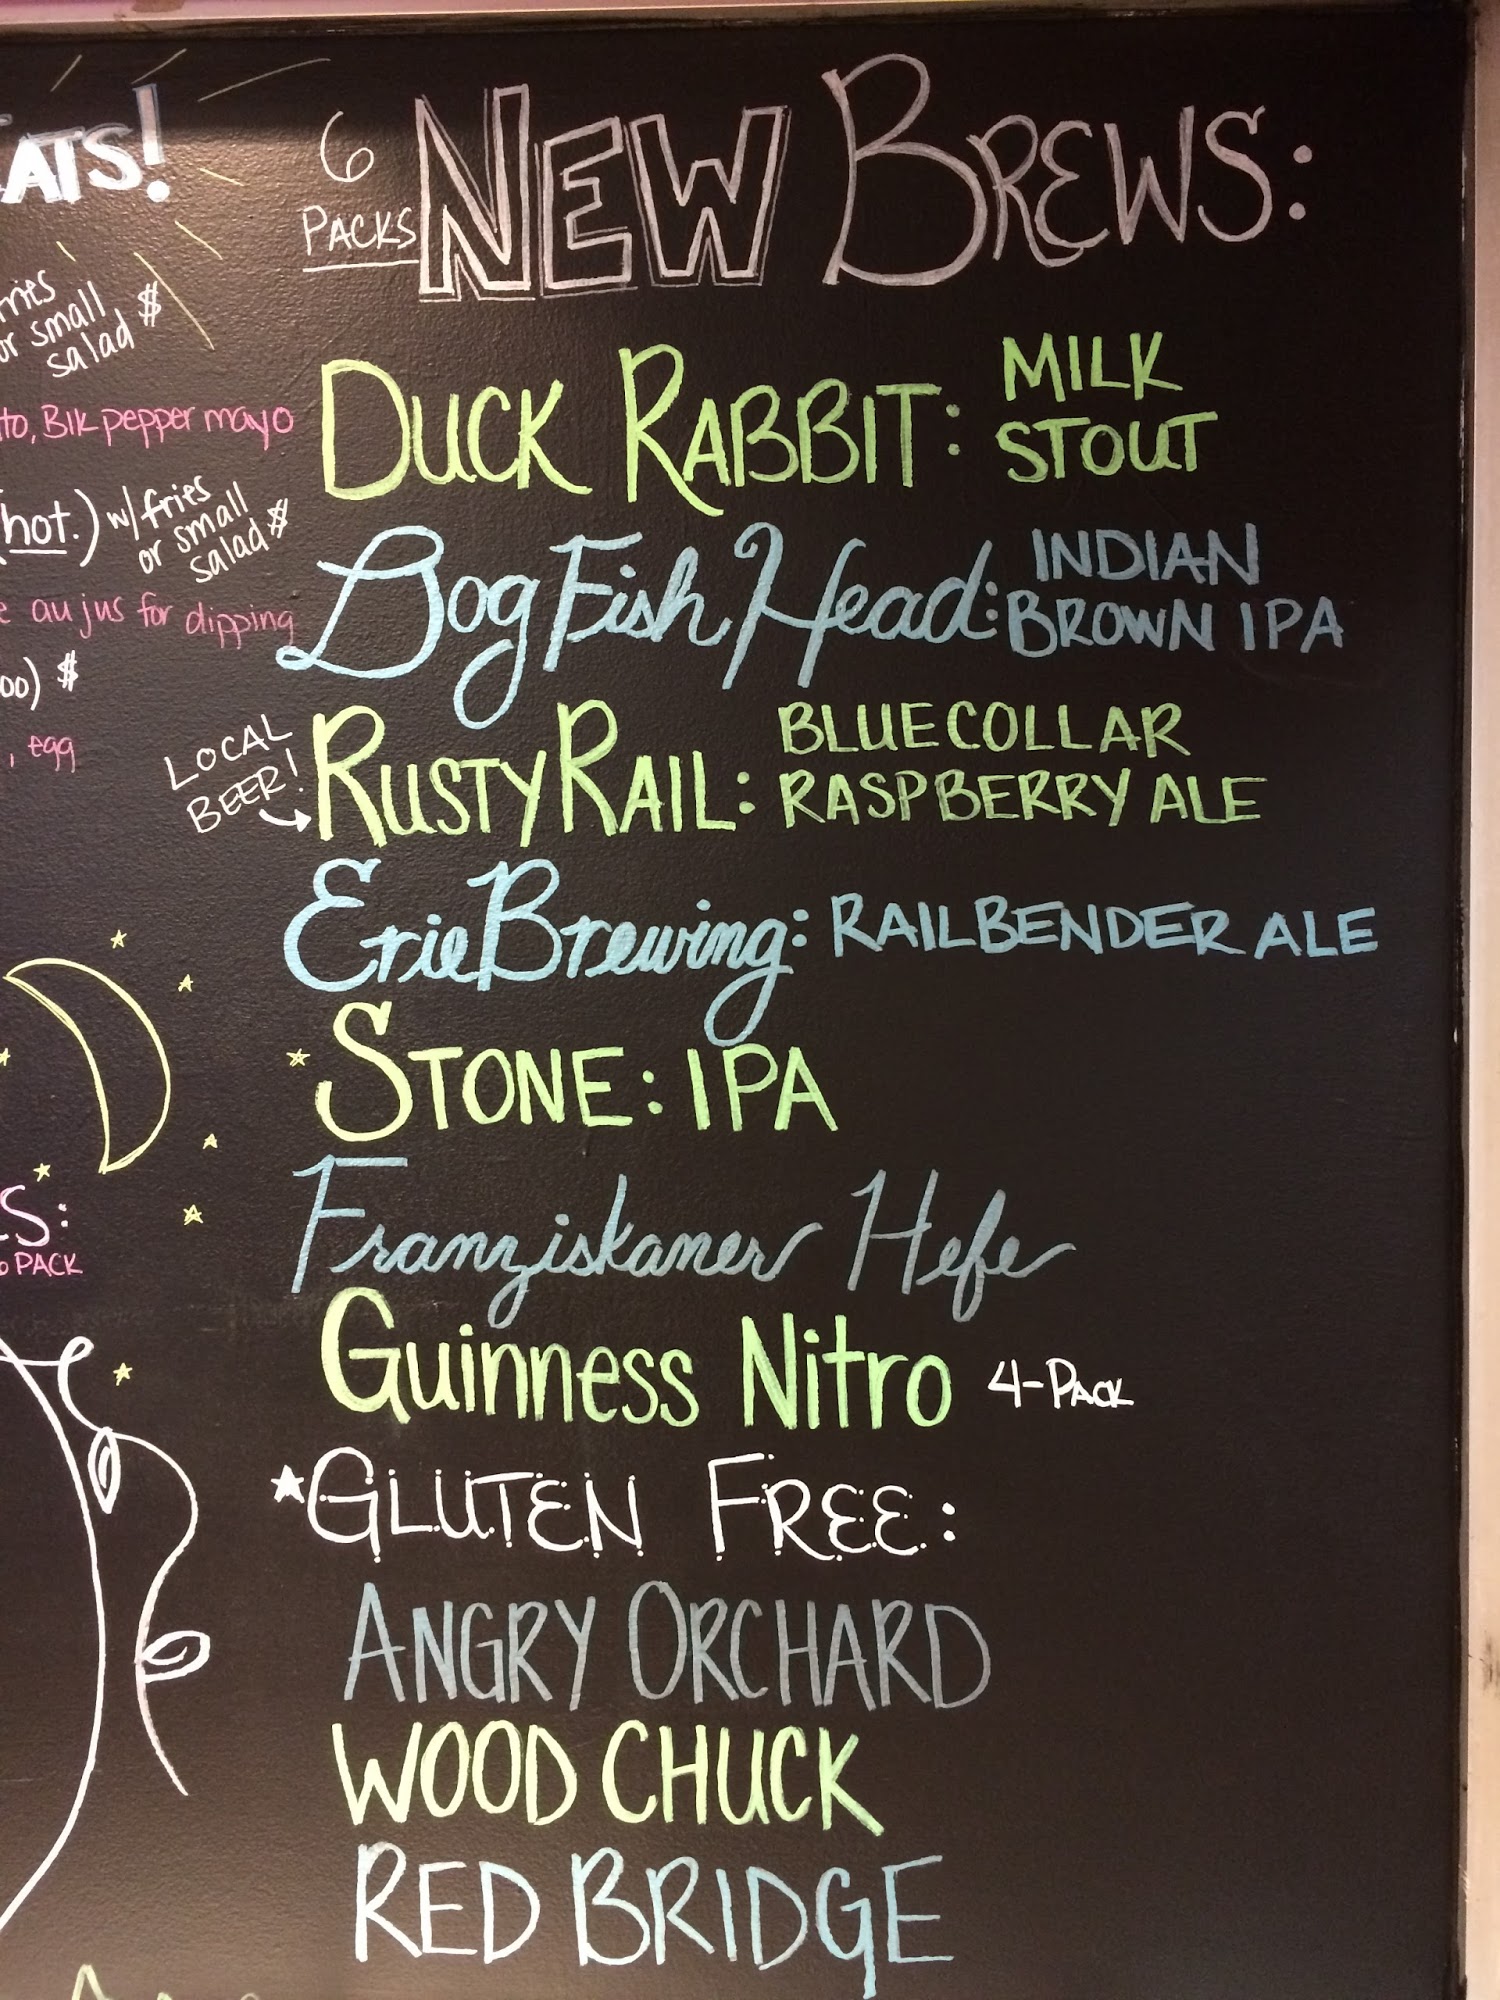 ATS!
fries
or small
salad $
to, Blk pepper mayo
(hot.) w/ fries
or small
salad $
au jus for dipping
$
, egg
S:
PACK
6
PACKS
NEW BREWS:
DUCK RABBIT: MILK
STOUT
Dog Fish Head: INDIAN
BROWN IPA
LOCAL
BEER!
RUSTY RAIL: BLUE COLLAR
RASPBERRY ALE
Erie Brewing: RAILBENDER ALE
STONE: IPA
Franziskaner Hefe
Guinness Nitro 4-PACK
GLUTEN FREE:
ANGRY ORCHARD
WOOD CHUCK
RED BRIDGE